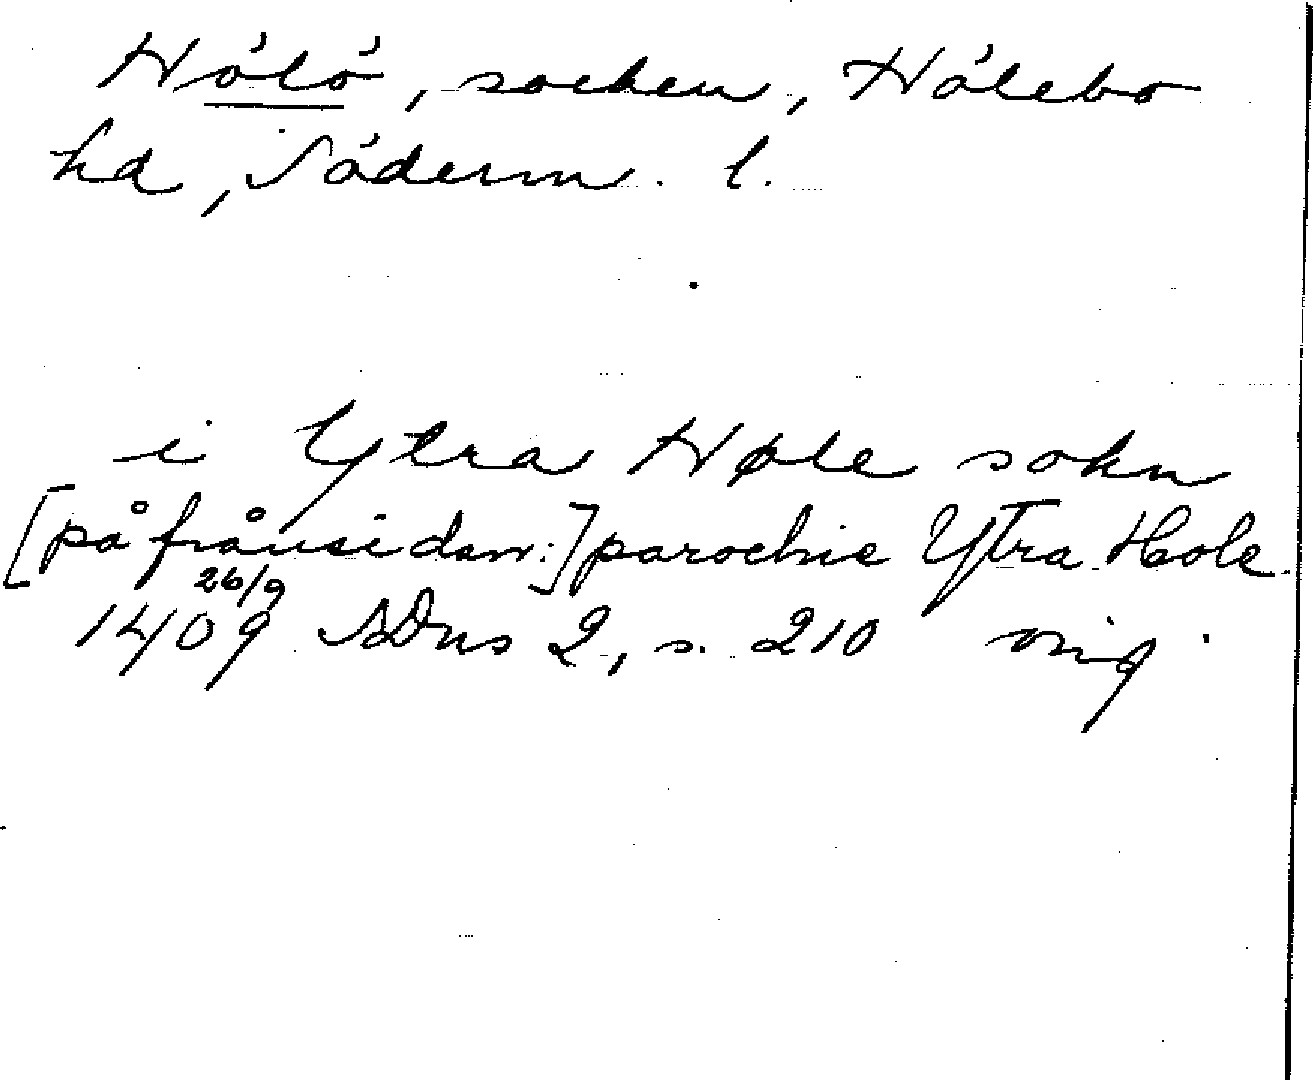 Hölö, socken, Hölebo
hd, Söderm. l.
i Ytra Høle sokn
[på frånsidan:] parochie Ytra Hole.
26/9
1409 SDns 2, s. 210 orig.